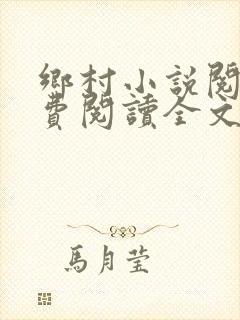 鄉村小說閱
費閱讀全文
馬月瑩